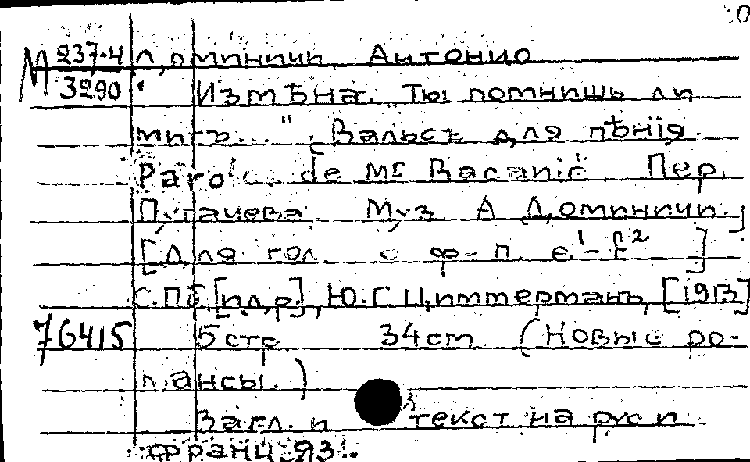 М 237-4 Доминичи Антонио
3290 Измѣна. „Ты помнишь ли
мигъ..." Вальсъ для пѣнія.
Paroles de Mr Bacanié Пер.
Пугачева. Муз А Доминичи.
[Для гол. с ф-п. e¹-f²]
С.Пб [и др], Ю.Г. Циммерманъ, [1913]
76415 5 стр 34 cm (Новые ро-
мансы.)
Загл. и текст на рус и
франц. яз.